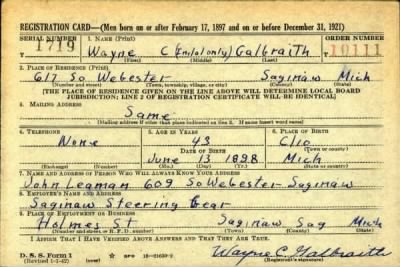 REGISTRATION CARD—(Men born on or after February 17, 1897 and on or before December 31, 1921)
SERIAL NUMBER 1. NAME (Print) ORDER NUMBER
1719 Wayne C (initial only) Galbraith 10111
(First) (Middle) (Last)
2. PLACE OF RESIDENCE (Print)
617 So Webester Saginaw Mich
(Number and street) (Town, township, village, or city) (County) (State)
[THE PLACE OF RESIDENCE GIVEN ON THE LINE ABOVE WILL DETERMINE LOCAL BOARD
JURISDICTION; LINE 2 OF REGISTRATION CERTIFICATE WILL BE IDENTICAL]
3. MAILING ADDRESS
Same
[Mailing address if other than place indicated on line 2. If same insert word same]
4. TELEPHONE 5. AGE IN YEARS 6. PLACE OF BIRTH
None 43 Clio
DATE OF BIRTH (Town or county)
June 13 1898 Mich
(Exchange) (Number) (Mo.) (Day) (Yr.) (State or country)
7. NAME AND ADDRESS OF PERSON WHO WILL ALWAYS KNOW YOUR ADDRESS
John Leaman 609 So Webester-Saginaw
8. EMPLOYER'S NAME AND ADDRESS
Saginaw Steering Gear
9. PLACE OF EMPLOYMENT OR BUSINESS
Holmes St. Saginaw Sag Mich
(Number and street or R. F. D. number) (Town) (County) (State)
I AFFIRM THAT I HAVE VERIFIED ABOVE ANSWERS AND THAT THEY ARE TRUE.
D. S. S. Form 1 Wayne C. Galbraith
(Revised 1-1-42) (over) (Registrant's signature)